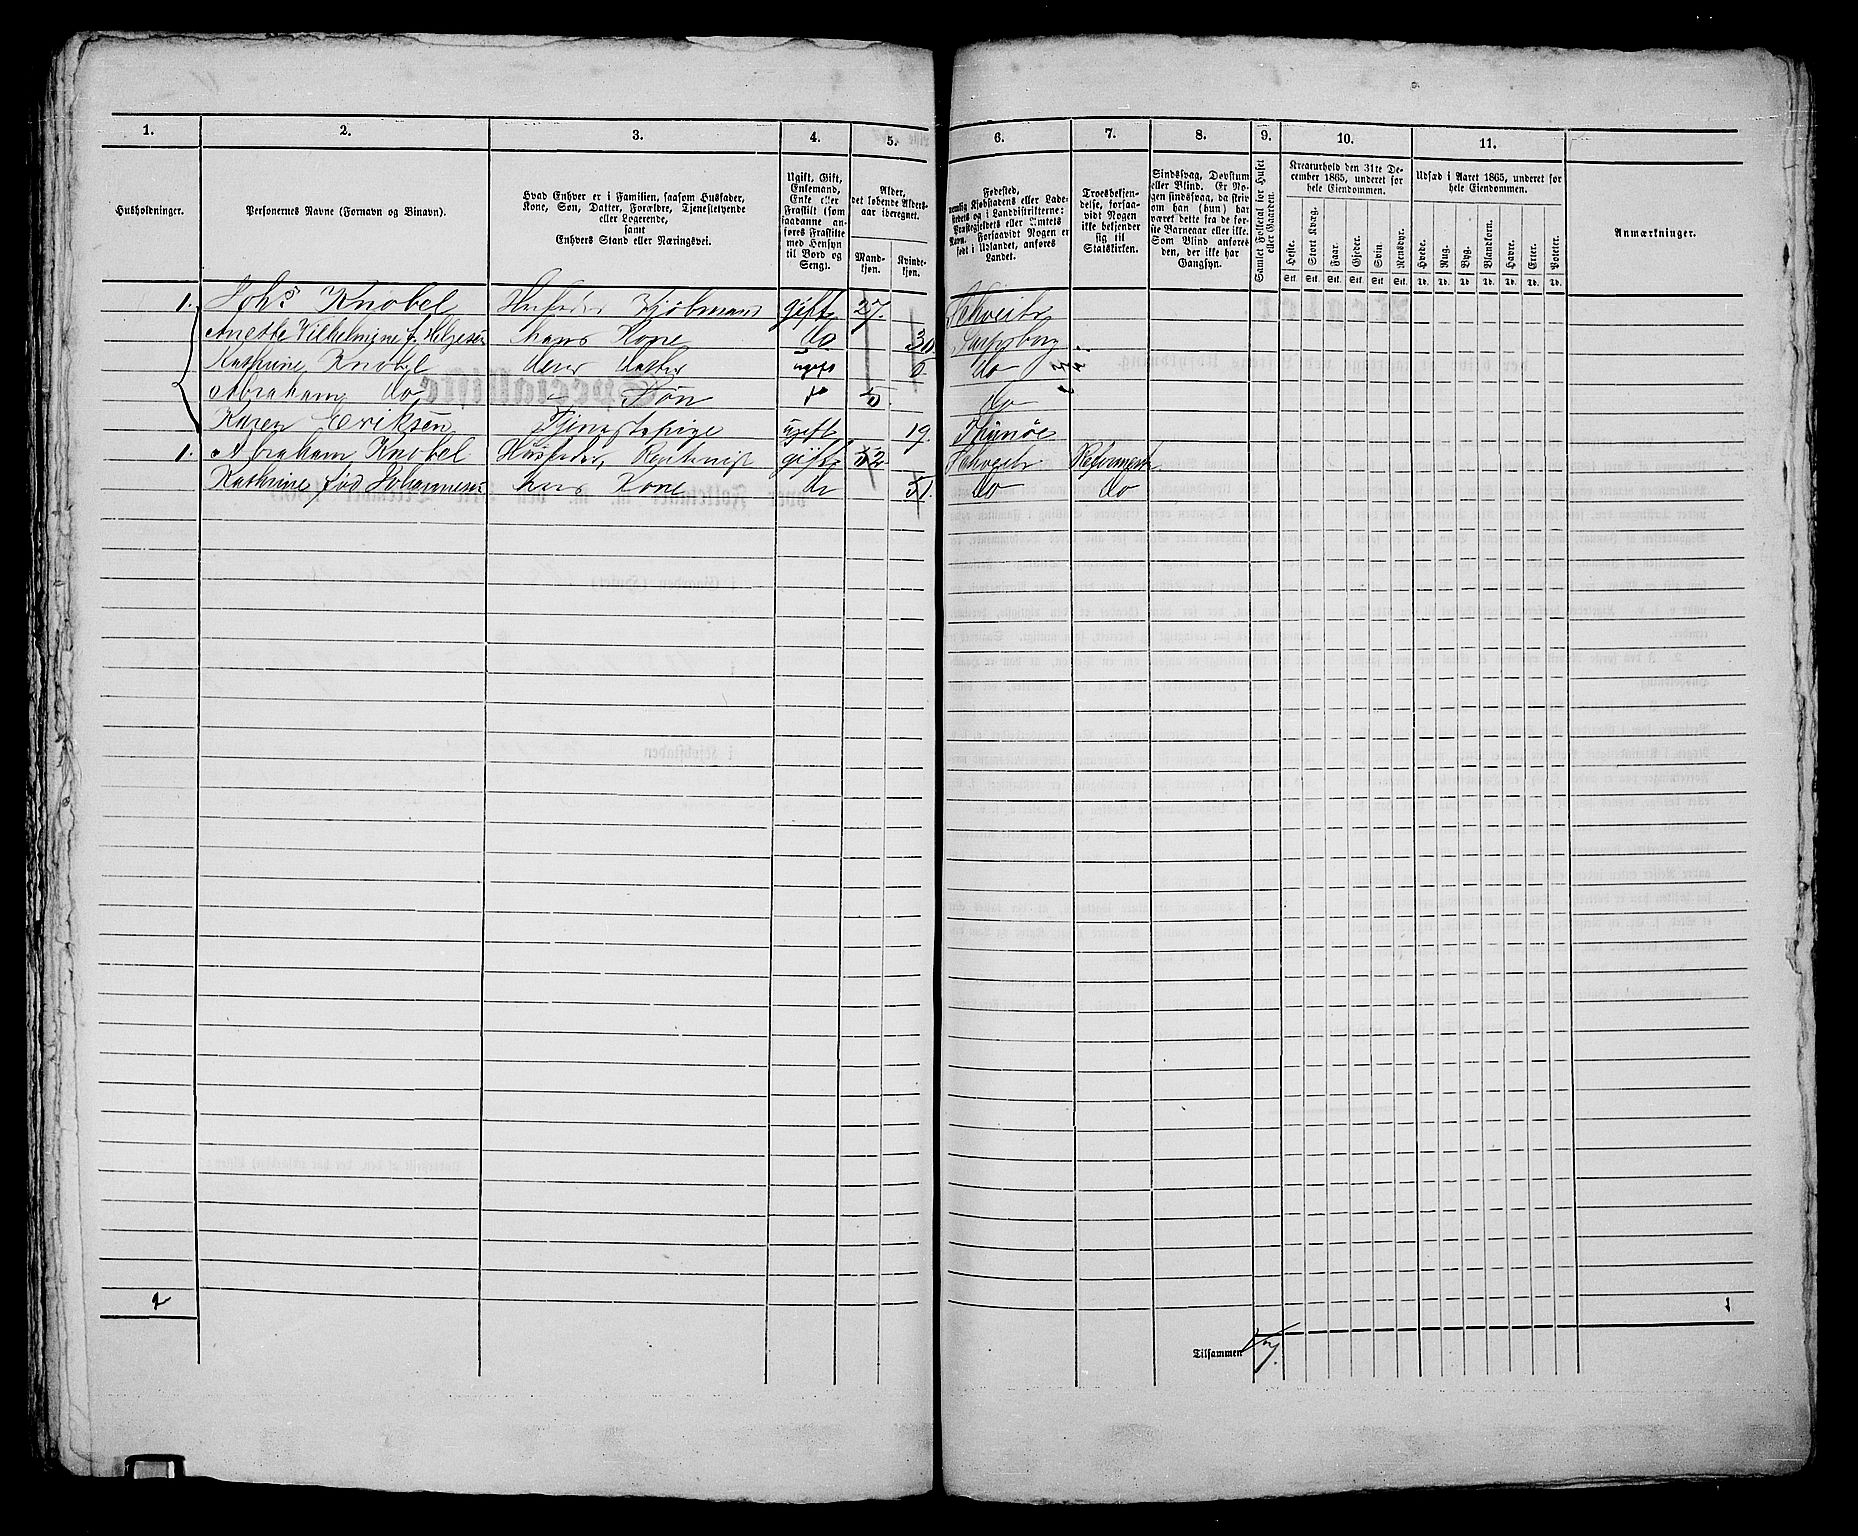 1. 2. 3. 4. 5. 6. 7. 8. 9. 10. 11.
Husholdninger.
Personernes Navne (Fornavn og Binavn).
Hvad Enhver er i Familien, saasom Husfader,
Kone, Søn, Datter, Forældre, Tjenestetyende
eller Logerende,
samt
Enhvers Stand eller Næringsvei.
Ugift, Gift,
Enkemand,
Enke eller
Fraskilt (som
saadanne an-
føres Fraskilte
med Hensyn
til Bord og
Seng).
Alder,
det løbende Alders-
aar iberegnet.
Mand-
kjøn.
Kvinde-
kjøn.
Fødested,
nemlig Kjøbstadens eller Lade-
stedets og i Landdistrikterne:
Præstegjeldets eller Amtets
Navn. Forsaavidt Nogen er
født i Udlandet, anføres
Landet.
Troesbekjen-
delse, forsaa-
vidt Nogen
ikke bekjender
sig til
Statskirken.
Sindssvag, Døvstum
eller Blind. Er No-
gen sindssvag, da skriv
om han (hun) har
været dette fra de før-
ste Barneaar eller ikke.
Som Blind anføres
den, der ikke har
Gangsyn.
Samlet Folketal for Huset
eller Gaarden.
Kreaturhold den 31te De-
cember 1865, underet for
hele Eiendommen.
Heste. Stort Kvæg. Faar. Gjeder. Svin. Rensdyr.
Stk. Stk. Stk. Stk. Stk. Stk.
Udsæd i Aaret 1865, underet for
hele Eiendommen.
Hvede. Rug. Byg. Blandkorn. Havre. Erter. Poteter.
Td. Td. Td. Td. Td. Td. Td.
Anmærkninger.
1. Johs Knobel Husfader Kjøbmand gift 27. Schveits
Anette Vilhelmine f. Helgesen hans Kone do 30 Sarpsborg
Kathrine Knobel deres datter ugift do
Abraham do Søn do
Karen Eriksen Tjenestepige ugift 19.
1. Abraham Knobel Husfader, gift 52. Schveits Reformert
Kathrine fød Johannesen hans Kone do 51. do do
2
Tilsammen 7.